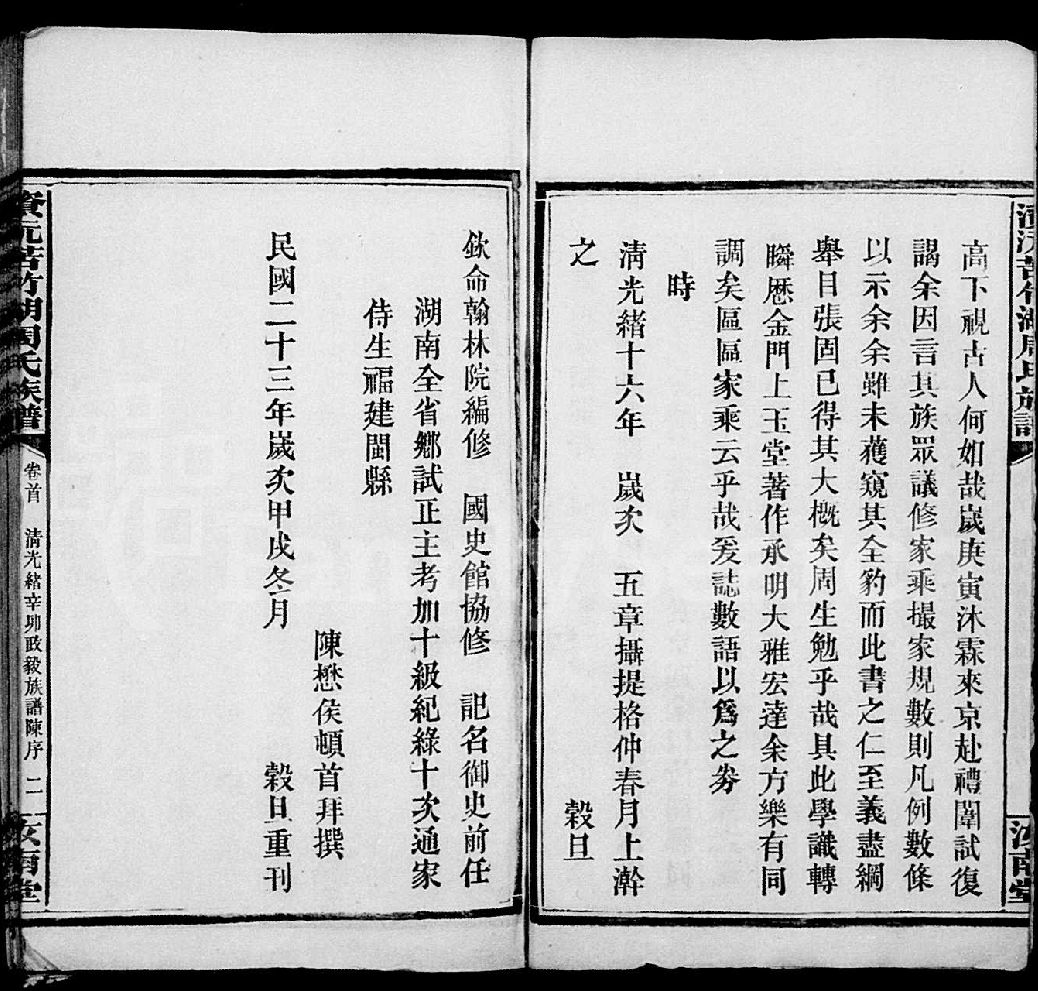 高下視古人何如哉歲庚寅沐霖來京赴禮闈試復
謁余因言其族眾議修家乘撮家規數則凡例數條
以示余余雖未蒦窺其全豹而此書之仁至義盡綱
舉目張固已得其大概矣周生勉乎哉具此學識轉
瞬歷金門上玉堂著作承明大雅宏達余方樂有同
調矣區區家乘云乎哉爰誌數語以爲之劵
時
淸光緒十六年 歲次 五章攝提格仲春月上澣
之 穀旦
汝南堂
欽命翰林院編修 國史館協修 記名御史前任
湖南全省鄉試正主考加十級紀綠十次通家
侍生福建閩縣
陳懋侯頓首拜撰
民國二十三年歲次甲戌冬月 穀旦重刊
資沅苦竹湖周氏族譜 卷首 清光緒辛卯政敘族譜陳序 二 汝南堂